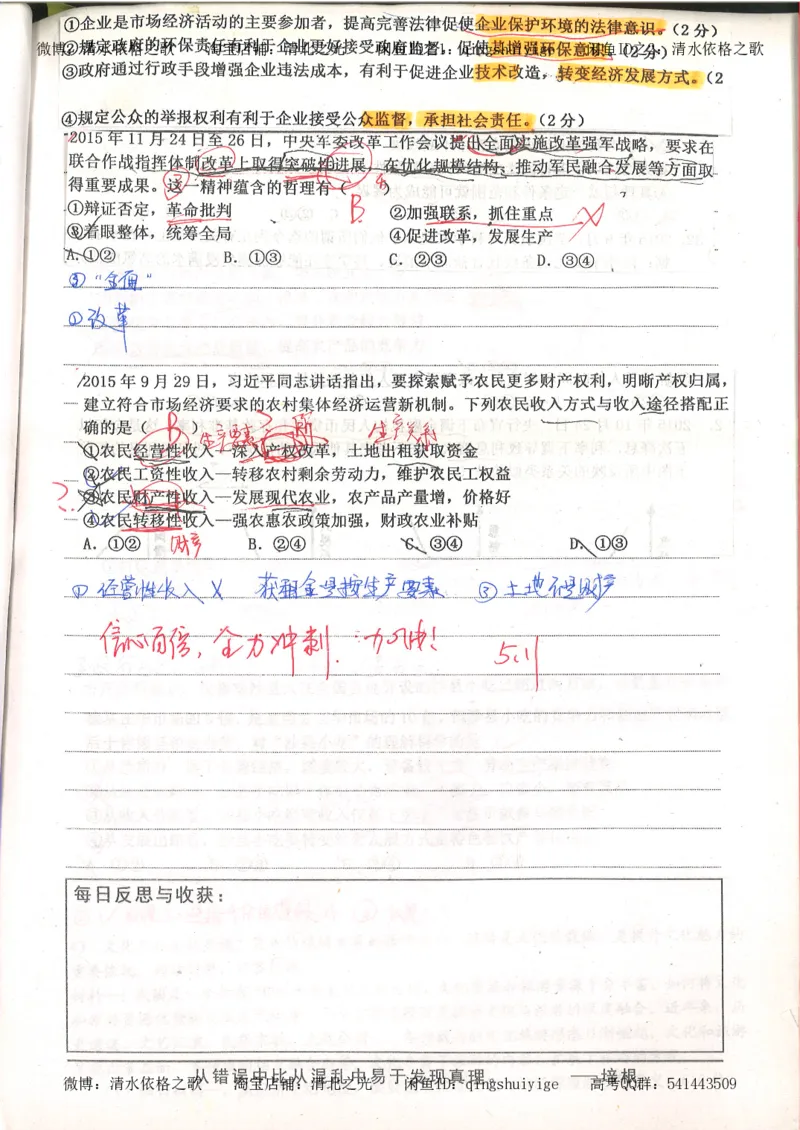 ①企业是市场经济活动的主要参加者，提高完善法律促使企业保护环境的法律意识。（2分）
②规定政府的环保责任有利于企业更好接受政府监督，促使其增强环保意识。（2分）
微博：清水依格之歌 淘宝店铺：清北之光 闲鱼ID：清水依格之歌
③政府通过行政手段增强企业违法成本，有利于促进企业技术改造，转变经济发展方式。（2
④规定公众的举报权利有利于企业接受公众监督，承担社会责任。（2分）
2015年11月24日至26日，中央军委改革工作会议提出全面实施改革强军战略，要求在
联合作战指挥体制改革上取得突破性进展，在优化规模结构、推动军民融合发展等方面取
得重要成果。这一精神蕴含的哲理有（
B
①辩证否定，革命批判 ②加强联系，抓住重点
③着眼整体，统筹全局 ④促进改革，发展生产
A.①② B.①③ C.②③ D.③④
③“全面”
①改革
2015年9月29日，习近平同志讲话指出，要探索赋予农民更多财产权利，明晰产权归属，
建立符合市场经济要求的农村集体经济运营新机制。下列农民收入方式与收入途径搭配正
确的是（
B 生产要素
①农民经营性收入—深入产权改革，土地出租获取资金
②农民工资性收入—转移农村剩余劳动力，维护农民工权益
？③农民财产性收入—发展现代农业，农产品产量增，价格好
④农民转移性收入—强农惠农政策加强，财政农业补贴
A．①② B．②④ C．③④ D．①③
财产
①经营性收入 X 获租金是按生产要素 ③土地不是财产
信心百倍，全力冲刺．加油！
5.11
每日反思与收获：
从错误中比从混乱中易于发现真理 ——培根
微博：清水依格之歌 淘宝店铺：清北之光 闲鱼ID：qingshuiyige 高考QQ群：541443509